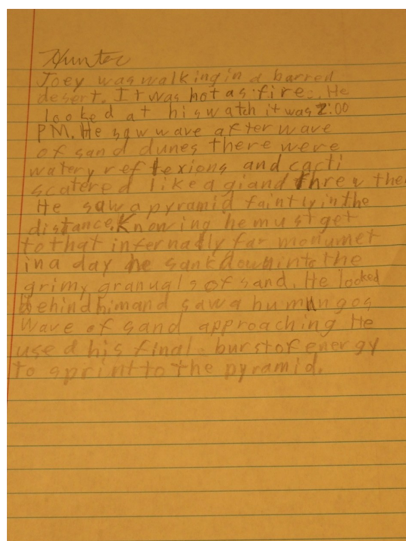 Hunter
Joey was walking in a barred
desert. It was hot as fire. He
looked at his watch it was 2:00
PM. He saw wave after wave
of sand dunes there were
watery reflexions and cacti
scatered like a giand threw the
He saw a pyramid faintly in the
distance. Knowing he must get
to that infernally far monumet
in a day he sank down into the
grimy granuals of sand. He looked
behind him and saw a humungos
wave of sand approaching He
used his final burst of energy
to sprint to the pyramid.